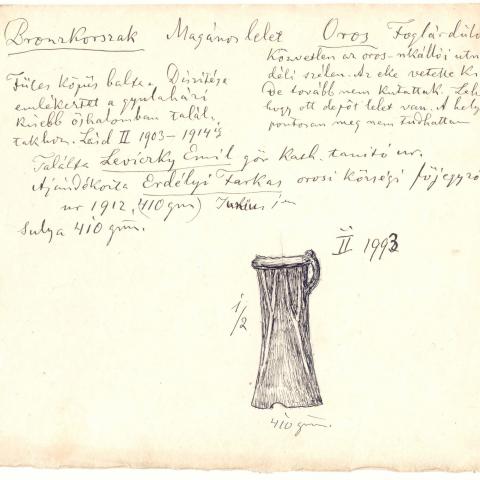 Bronzkorszak Magános lelet Oros Foglárdűlő
Közvetlen az oros-nkállói útn
déli szélen. Az eke vetette ki
De tovább nem kutattak. Lehe
hogy ott depôt lelet van. A hely
pontosan meg nem tudhattam
Füles köpüs balta. Díszítése
emlékeztet a gyulaházi
kisebb őshalomban talál-
takhoz. Lásd II 1903–1914 is
Találta Leviczky Emil gör kath. tanító ur.
Ajándékozta Erdélyi Farkas orosi községi főjegyző
ur 1912. (410 gm) Junius
Sulya 410 gm.
II 1993
1/2
410 gm.